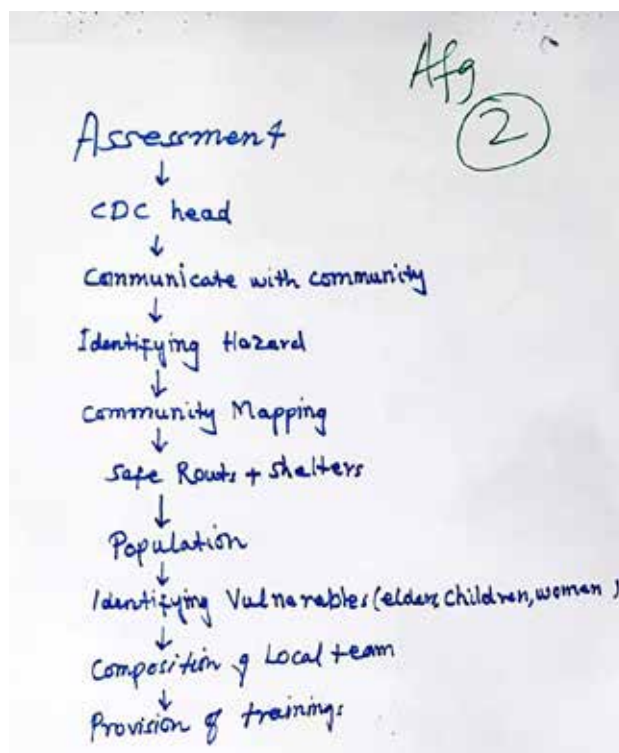 Afg
2
Assessment
↓
CDC head
↓
Communicate with community
↓
Identifying Hazard
↓
Community Mapping
↓
Safe Routs + Shelters
↓
Population
↓
Identifying Vulnarables (elders children, woman )
↓
Composition of Local team
↓
Provision of trainings